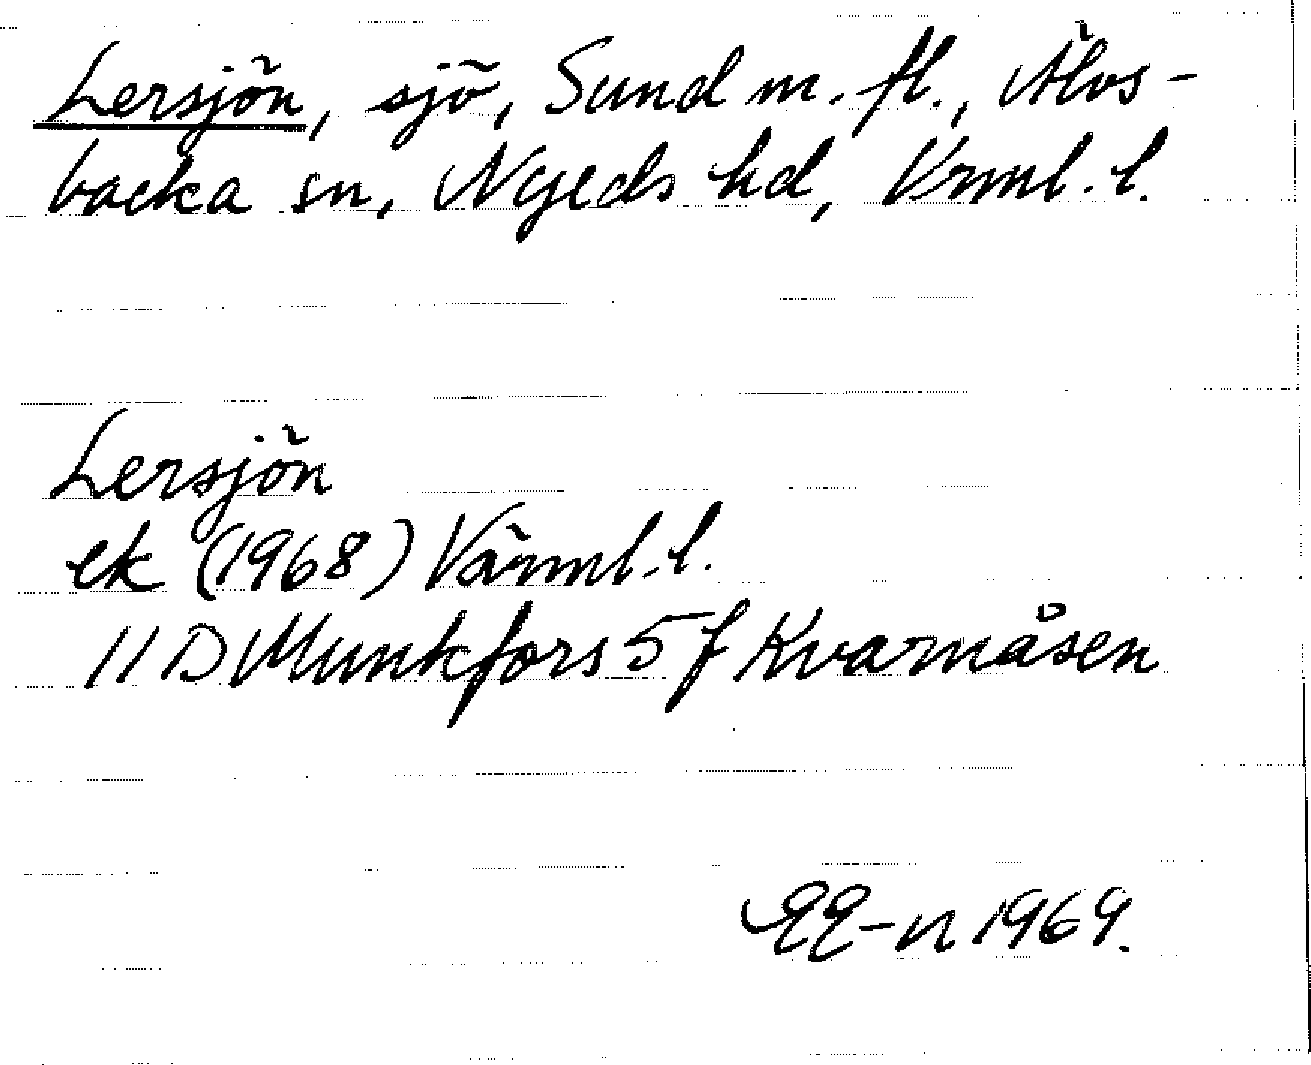 Lersjön, sjö, Sund m. fl., Älvs-
backa sn, Nyeds hd, Vrml. l.
Lersjön
ek (1968) Värml. l.
11 D Munkfors 5 f Kvarnåsen
1969.